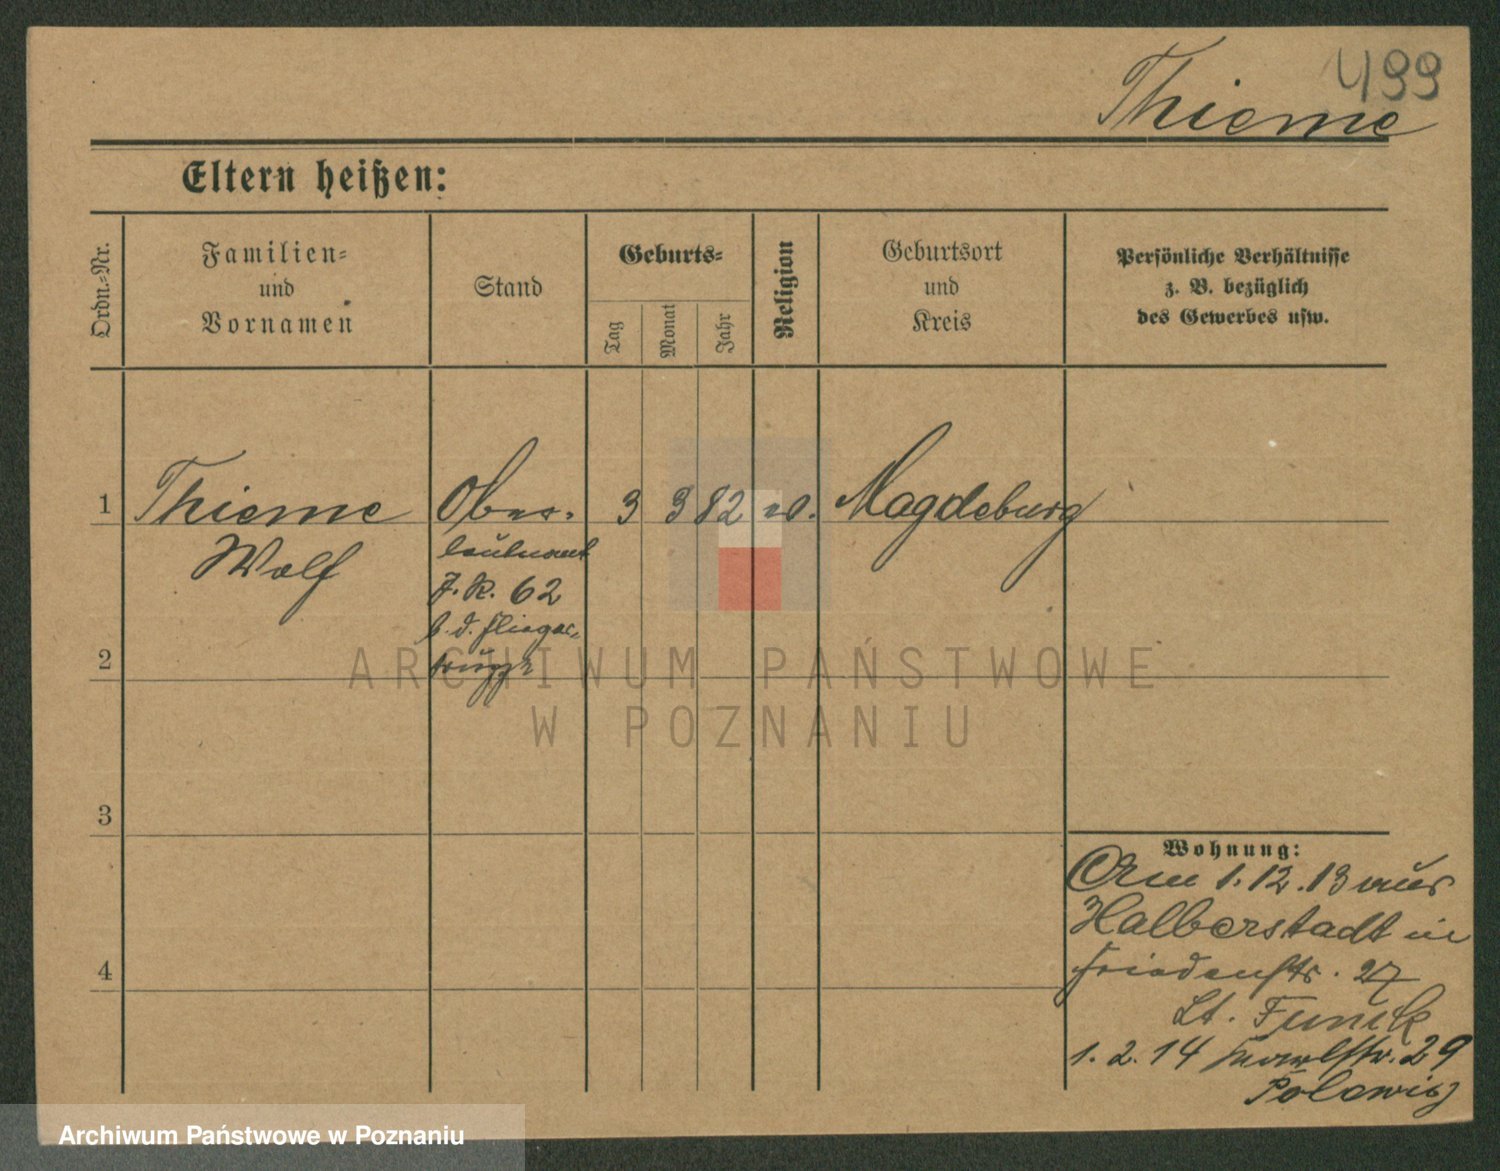 499
Thieme
Eltern heißen:
Ordn.-Nr.
Familien-
und
Vornamen
Stand
Geburts-
Tag
Monat
Jahr
Religion
Geburtsort
und
Kreis
Persönliche Verhältnisse
z. B. bezüglich
des Gewerbes usw.
1 Thieme Ober- 3 3 82 ev. Magdeburg
Wolf leutnant
J. R. 62
b. d. Flieger-
truppe
2
3
4
Wohnung:
Am 1.12.13 aus
Halberstadt in
Friedenstr. 27
Lt. Funck
1. 2. 14 29
Polowicz
ARCHIWUM PAŃSTWOWE
W POZNANIU
Archiwum Państwowe w Poznaniu